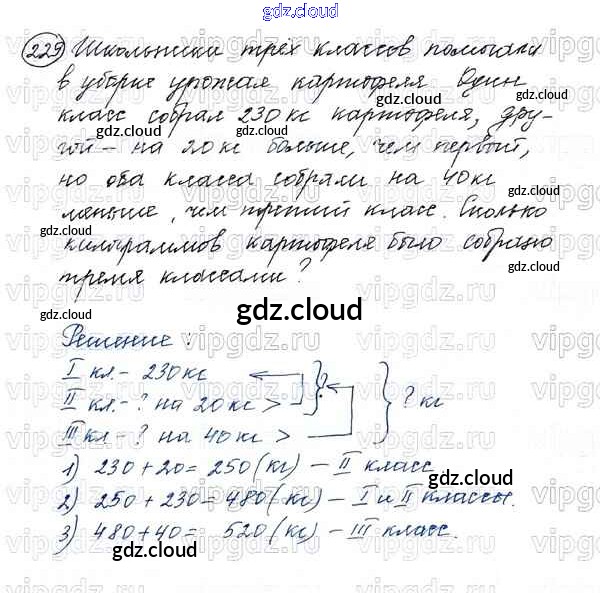 gdz.cloud
229 Школьники трёх классов помогали
в уборке урожая картофеля Один
класс собрал 230 кг картофеля, дру-
гой - на 20 кг больше, чем первый,
но оба класса собрали на 40 кг
меньше, чем третий класс. Сколько
килограммов картофеля было собрано
тремя классами?
gdz.cloud
Решение:
I кл. - 230 кг
II кл. - ? на 20 кг > ? ? кг
III кл - ? на 40 кг >
1) 230 + 20 = 250 (кг) - II класс
2) 250 + 230 = 480 (кг) - I и II классы.
3) 480 + 40 = 520 (кг) - III класс.
gdz.cloud